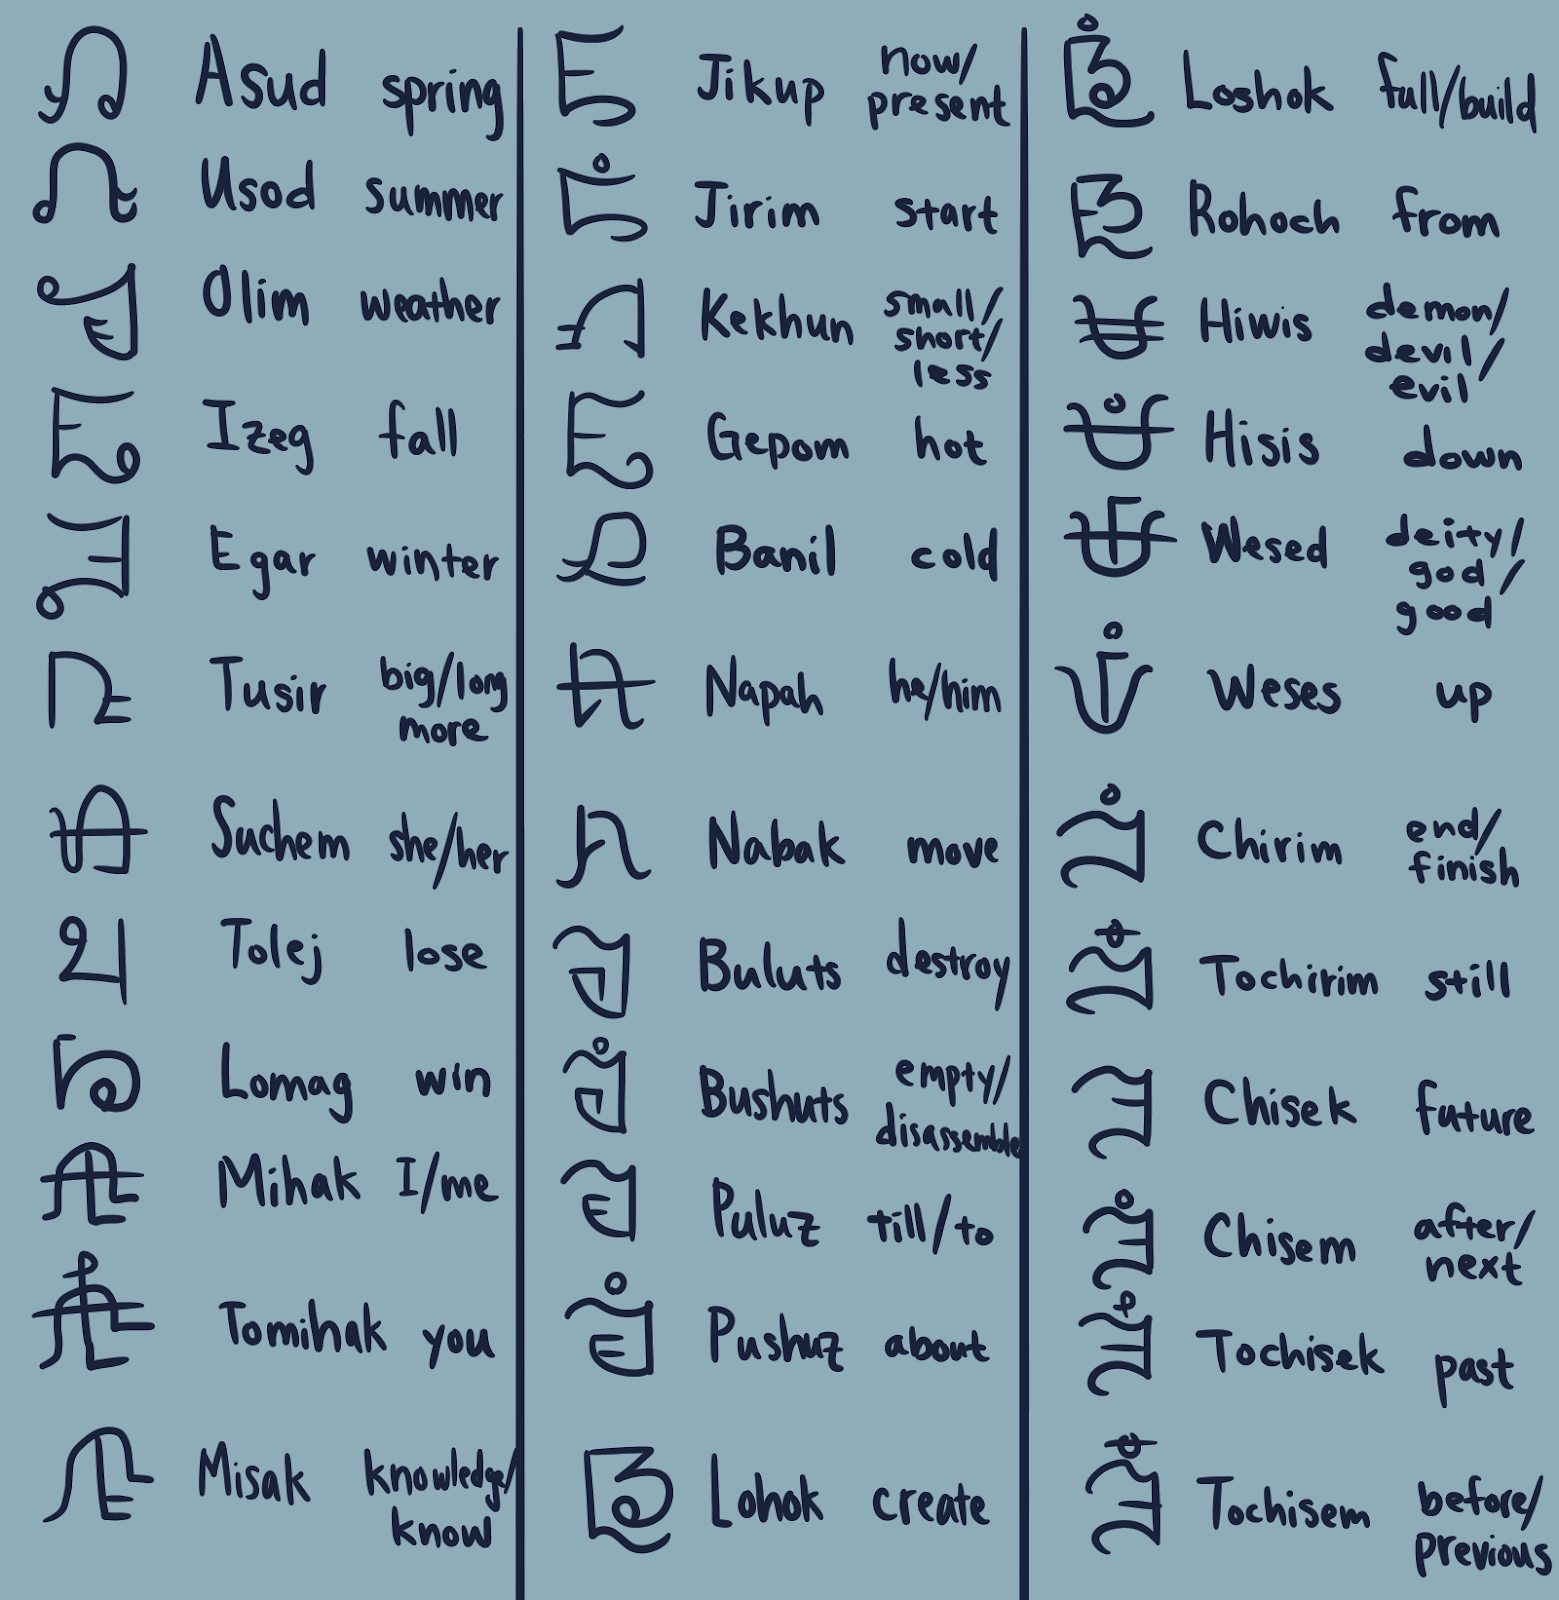 Asud spring
Usod summer
Olim weather
Izeg fall
Egar winter
Tusir big/long
more
Suchem she/her
Tolej lose
Lomag win
Mihak I/me
Tomihak you
Misak knowledge/
know
Jikup now/
present
Jirim start
Kekhun small/
short/
less
Gepom hot
Banil cold
Napah he/him
Nabak move
Buluts destroy
Bushuts empty/
disassemble
Puluz till/to
Pushuz about
Lohok create
Loshok full/build
Rohoch from
Hiwis demon/
devil/
evil
Hisis down
Wesed deity/
god/
good
Weses up
Chirim end/
finish
Tochirim still
Chisek future
Chisem after/
next
Tochisek past
Tochisem before/
previous